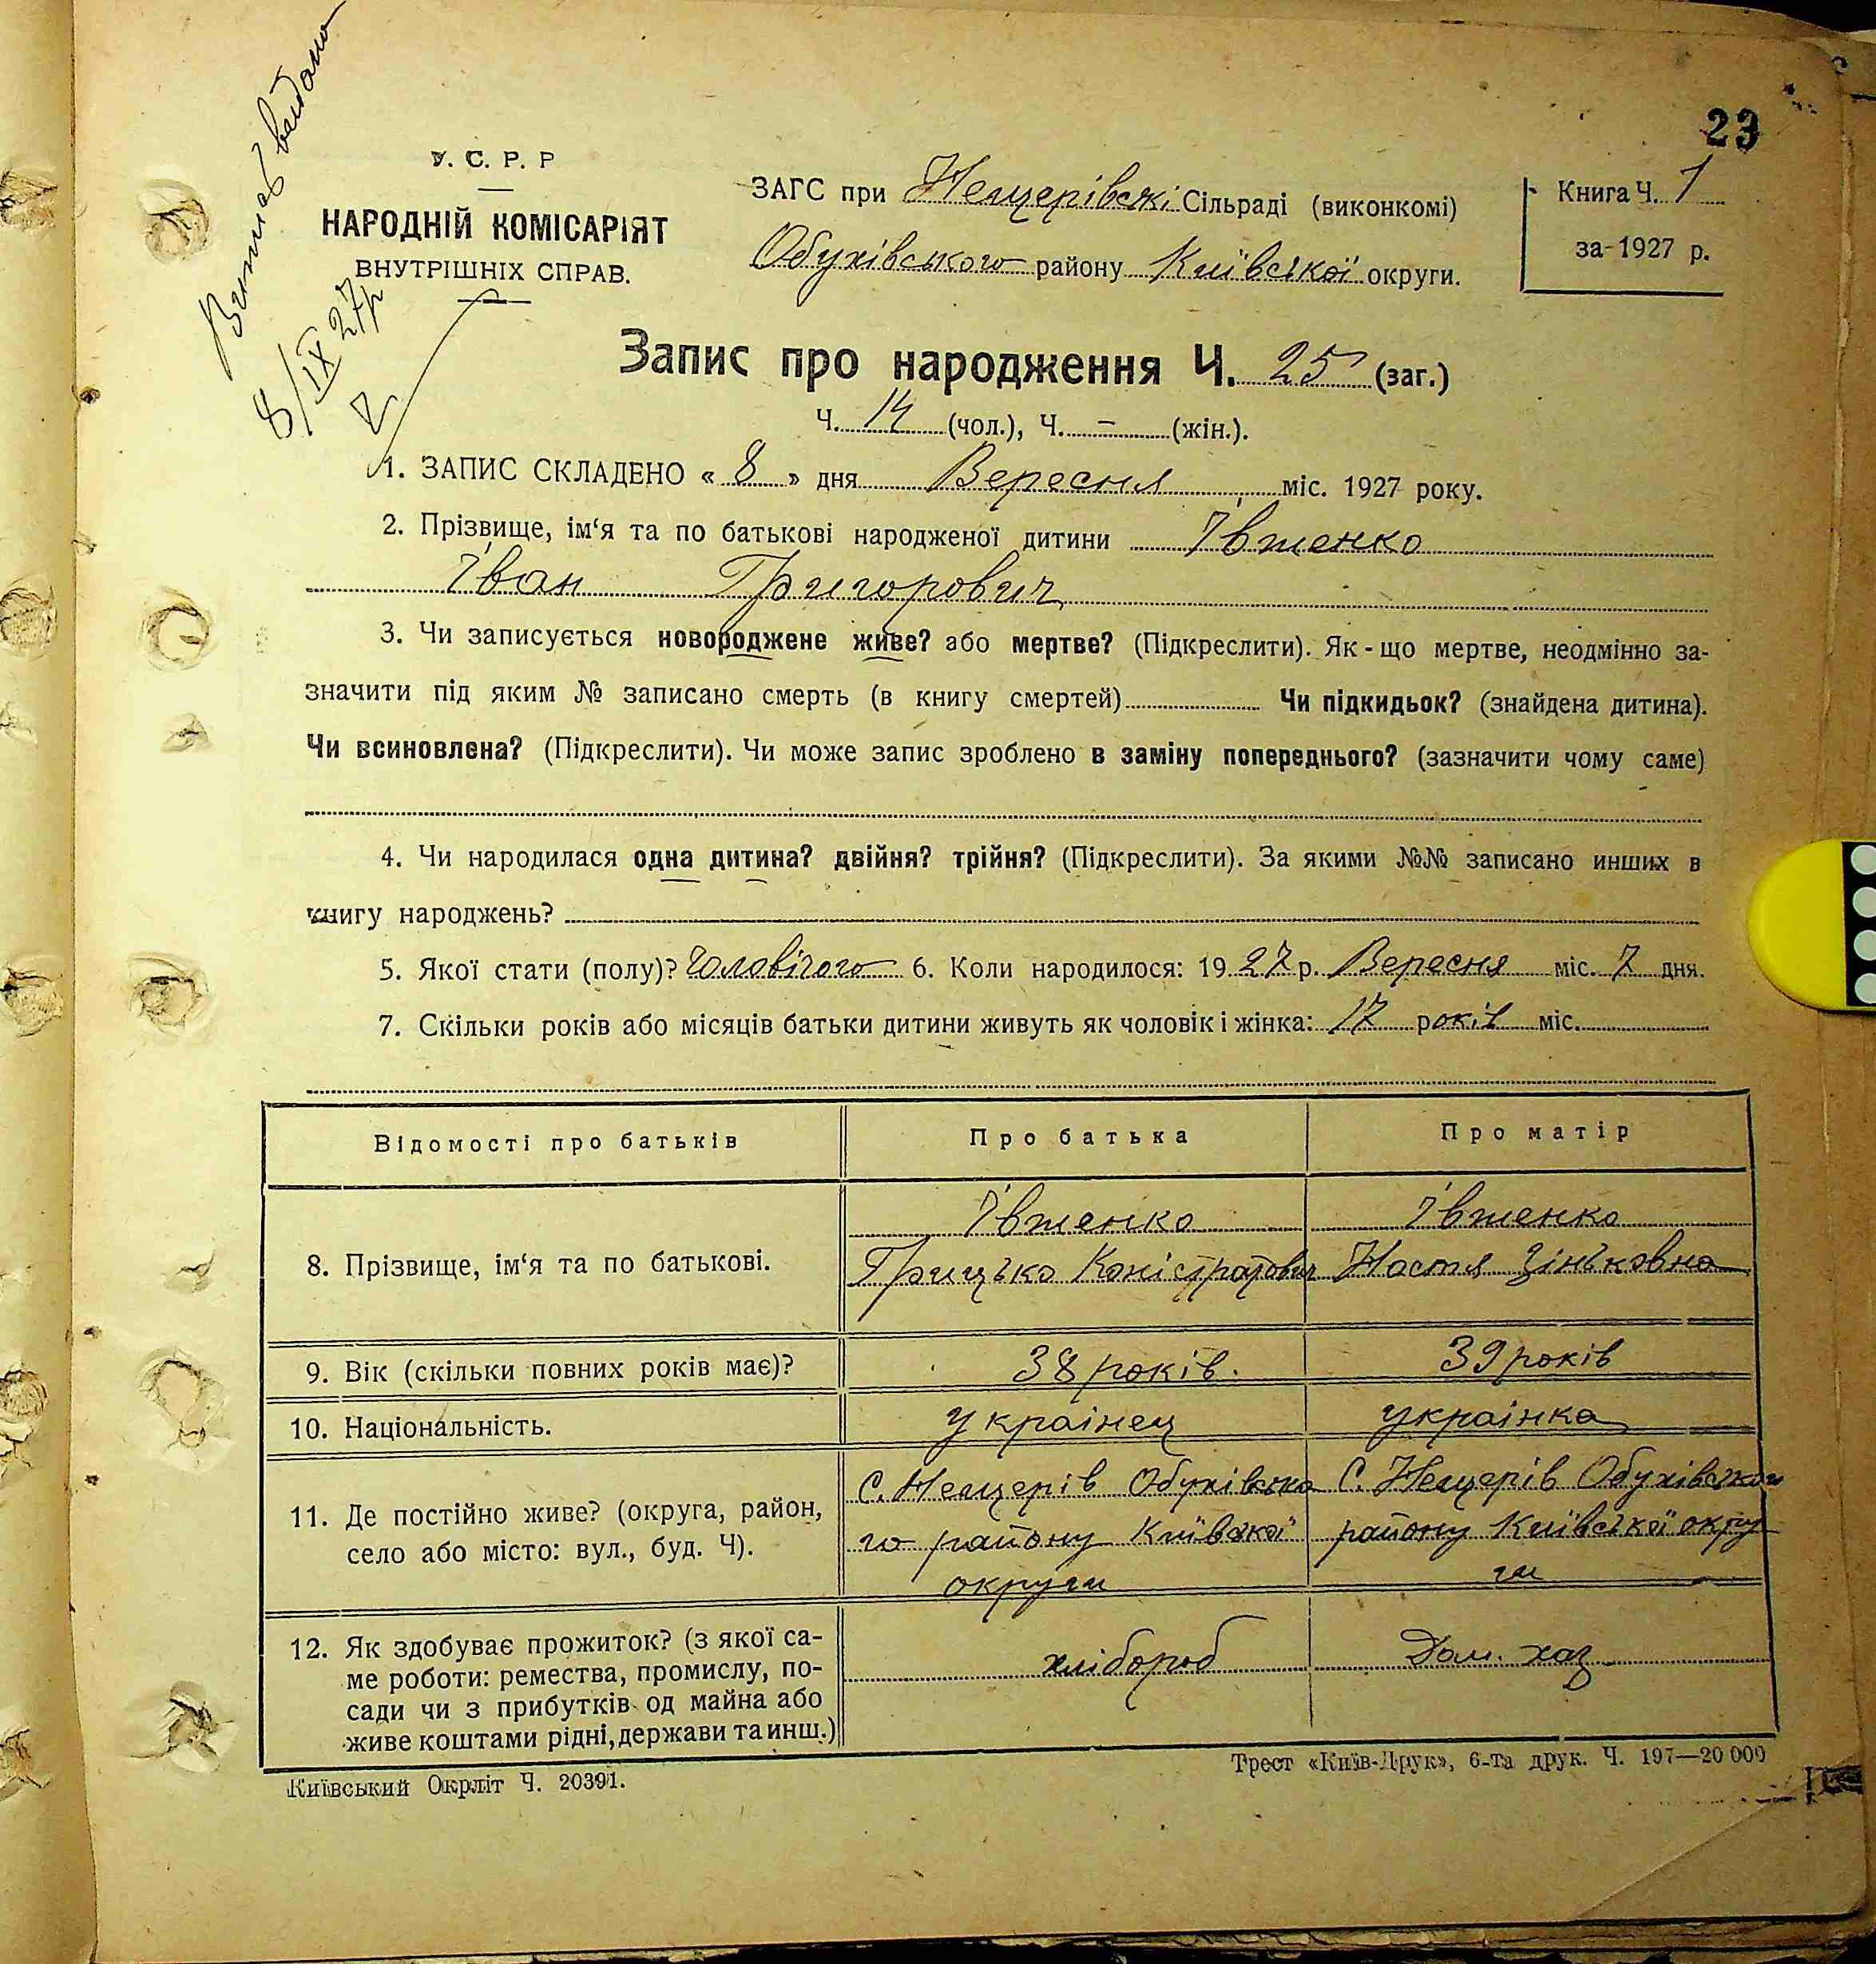 Витяг видано
8/IX 27р
23
У. С. Р. Р
НАРОДНІЙ КОМІСАРІЯТ
ВНУТРІШНІХ СПРАВ.
ЗАГС при Нещерівські Сільраді (виконкомі)
Обухівського району Київської округи.
Книга Ч. 1
за 1927 р.
Запис про народження Ч. 25 (заг.)
Ч. 14 (чол.), Ч. – (жін.).
1. ЗАПИС СКЛАДЕНО « 8 » дня Вересня міс. 1927 року.
2. Прізвище, ім‘я та по батькові народженої дитини Івтенко
Іван Григорович
3. Чи записується новороджене живе? або мертве? (Підкреслити). Як-що мертве, неодмінно за-
значити під яким № записано смерть (в книгу смертей) Чи підкидьок? (знайдена дитина).
Чи всиновлена? (Підкреслити). Чи може запис зроблено в заміну попереднього? (зазначити чому саме)
4. Чи народилася одна дитина? двійня? трійня? (Підкреслити). За якими №№ записано инших в
книгу народжень?
5. Якої стати (полу)? Чоловічого 6. Коли народилося: 1927 р. Вересня міс. 7 дня.
7. Скільки років або місяців батьки дитини живуть як чоловік і жінка: 17 років міс.
Відомості про батьків Про батька Про матір
Івтенко Івтенко
8. Прізвище, ім‘я та по батькові. Грицько Каністратович Настя Зіньковна
9. Вік (скільки повних років має)? 38 років. 39 років
10. Національність. українец українка
С. Нещерів Обухівсько С. Нещерів Обухівського
11. Де постійно живе? (округа, район, го району Київської району Київської окру
село або місто: вул., буд. Ч). округи ги
12. Як здобуває прожиток? (з якої са- хлібороб Дом. хаз.
ме роботи: ремества, промислу, по-
сади чи з прибутків од майна або
живе коштами рідні, держави та инш.)
Київський Окрліт Ч. 20391.
Трест «Київ-Друк», 6-та друк. Ч. 197—20 000